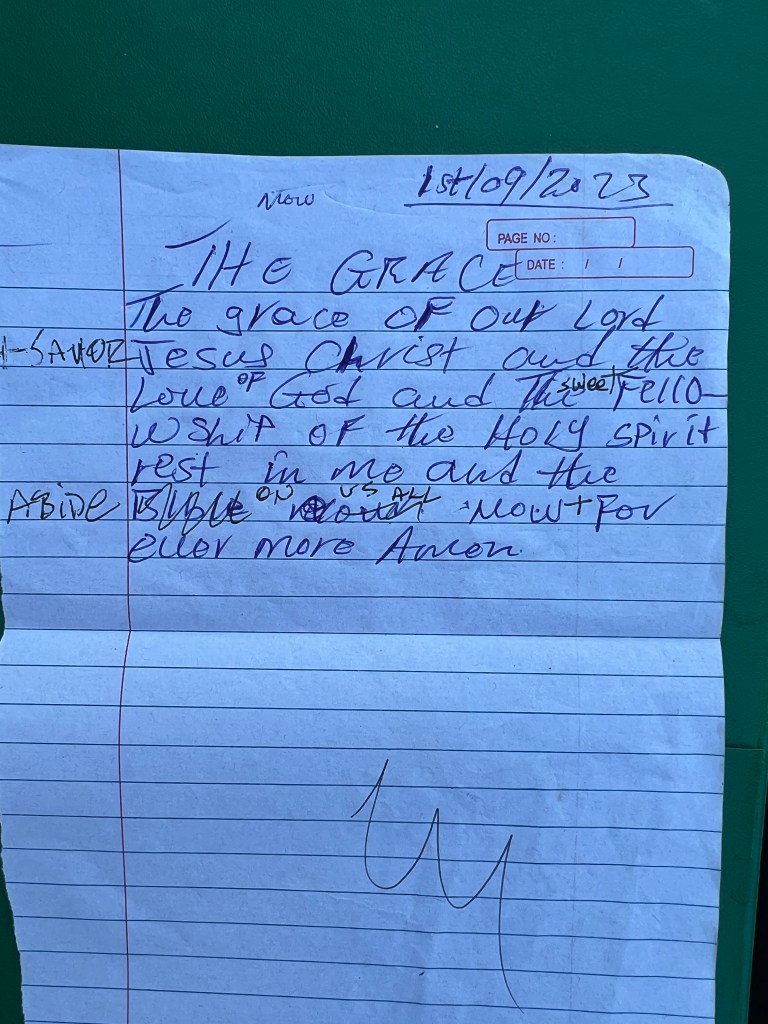 Now
1st/09/2023
PAGE NO :
DATE : / /
THE GRACE
The grace OF our Lord
Jesus Christ and the
Love OF God and The sweet Fello-
wShiP OF the HoLy spirit
rest in me and the
ABiDE BIBLE ON US ALL Now + For
ever more Amen